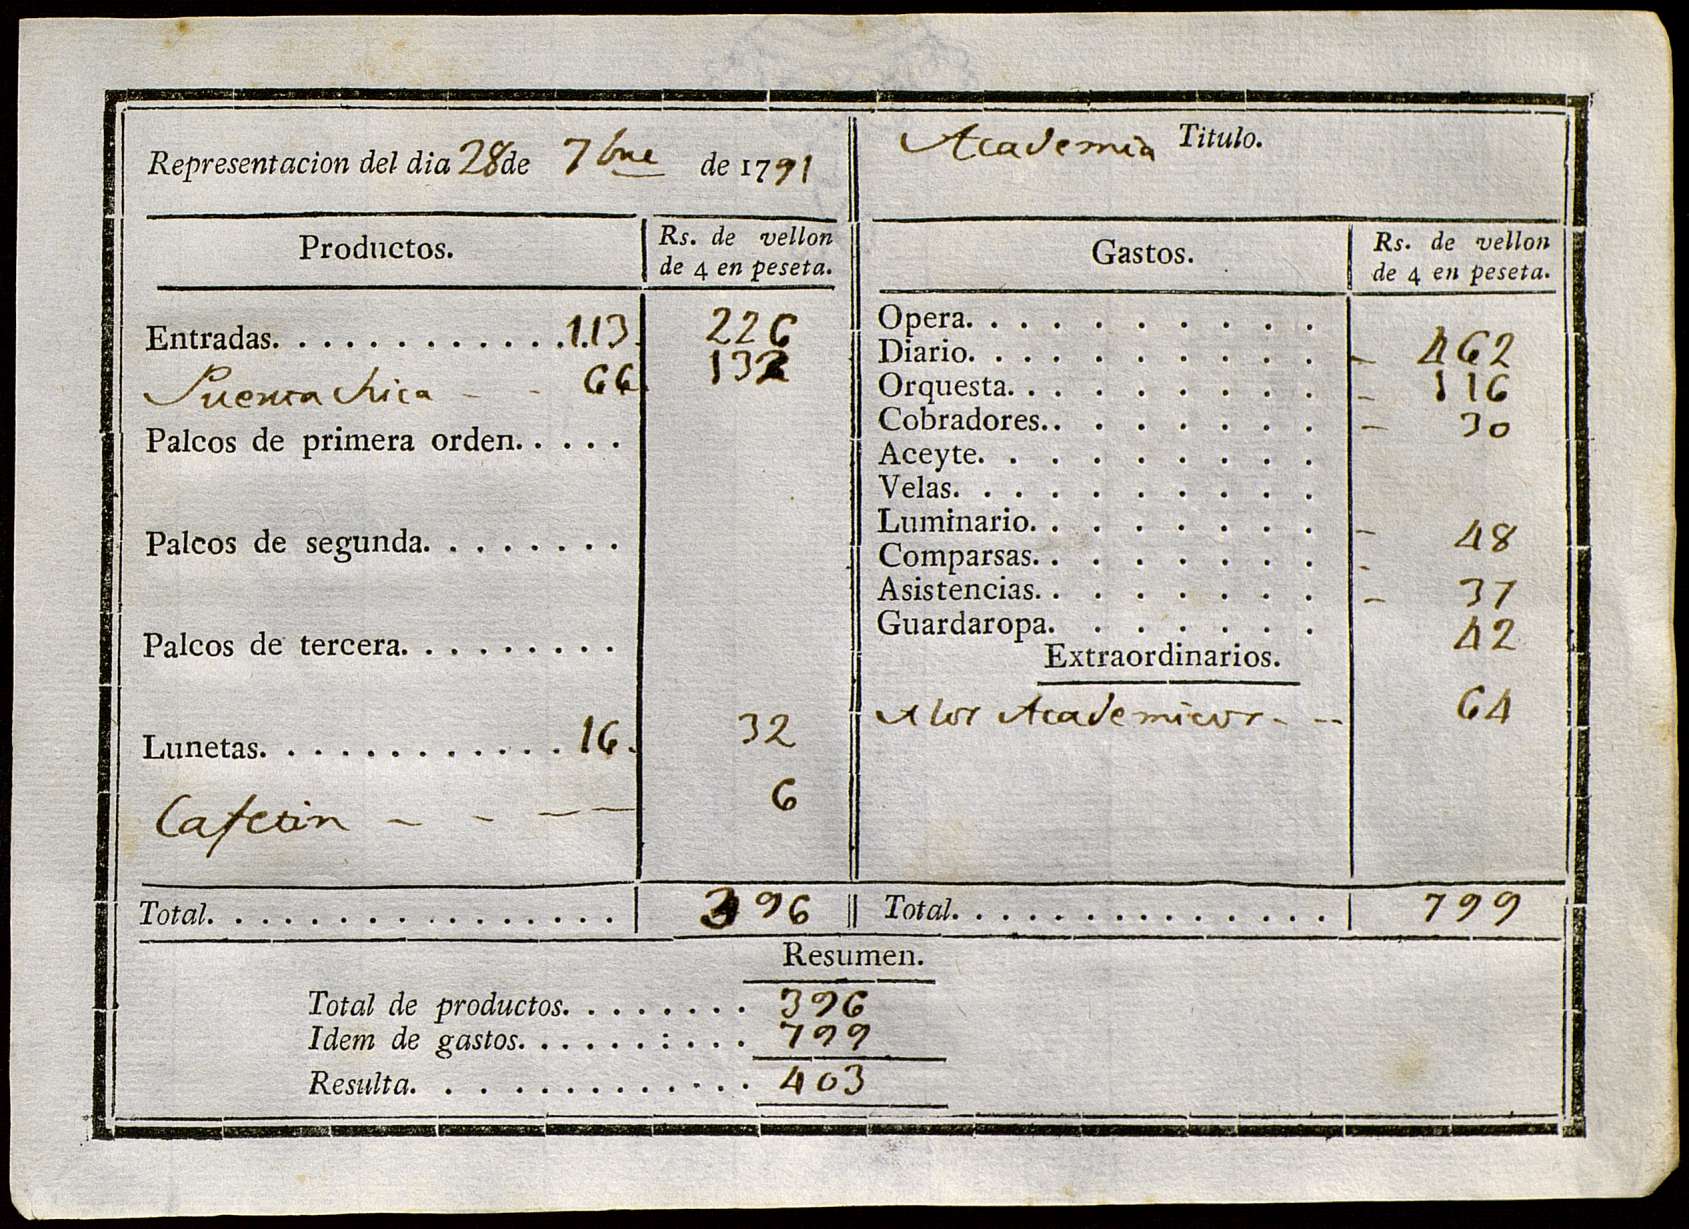 Representacion del dia 28 de 7bre de 1791
Academia Titulo.
Productos. Rs. de vellon
de 4 en peseta.
Entradas. . . . . . . . . . . . 113. 226
Puerta chica - - 66. 132
Palcos de primera orden. . . . .
Palcos de segunda. . . . . . . .
Palcos de tercera. . . . . . . . .
Lunetas. . . . . . . . . . . . 16. 32
Cafetin - - - - 6
Total. . . . . . . . . . . . . . . . 396
Gastos. Rs. de vellon
de 4 en peseta.
Opera. . . . . . . . . .
Diario. . . . . . . . . . - 462
Orquesta. . . . . . . . . - 116
Cobradores. . . . . . . . - 30
Aceyte. . . . . . . . . .
Velas. . . . . . . . . .
Luminario. . . . . . . . - 48
Comparsas. . . . . . . . -
Asistencias. . . . . . . . - 37
Guardaropa. . . . . . . 42
Extraordinarios.
A los Academicos - - - 64
Total. . . . . . . . . . . . . . . 799
Resumen.
Total de productos. . . . . . . . 396
Idem de gastos. . . . . . : . . . 799
Resulta. . . . . . . . . . . . . 403